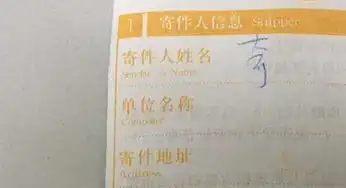 1 寄件人信息 Shipper
寄件人姓名
Sender's Name
单位名称
Company
寄件地址
Address